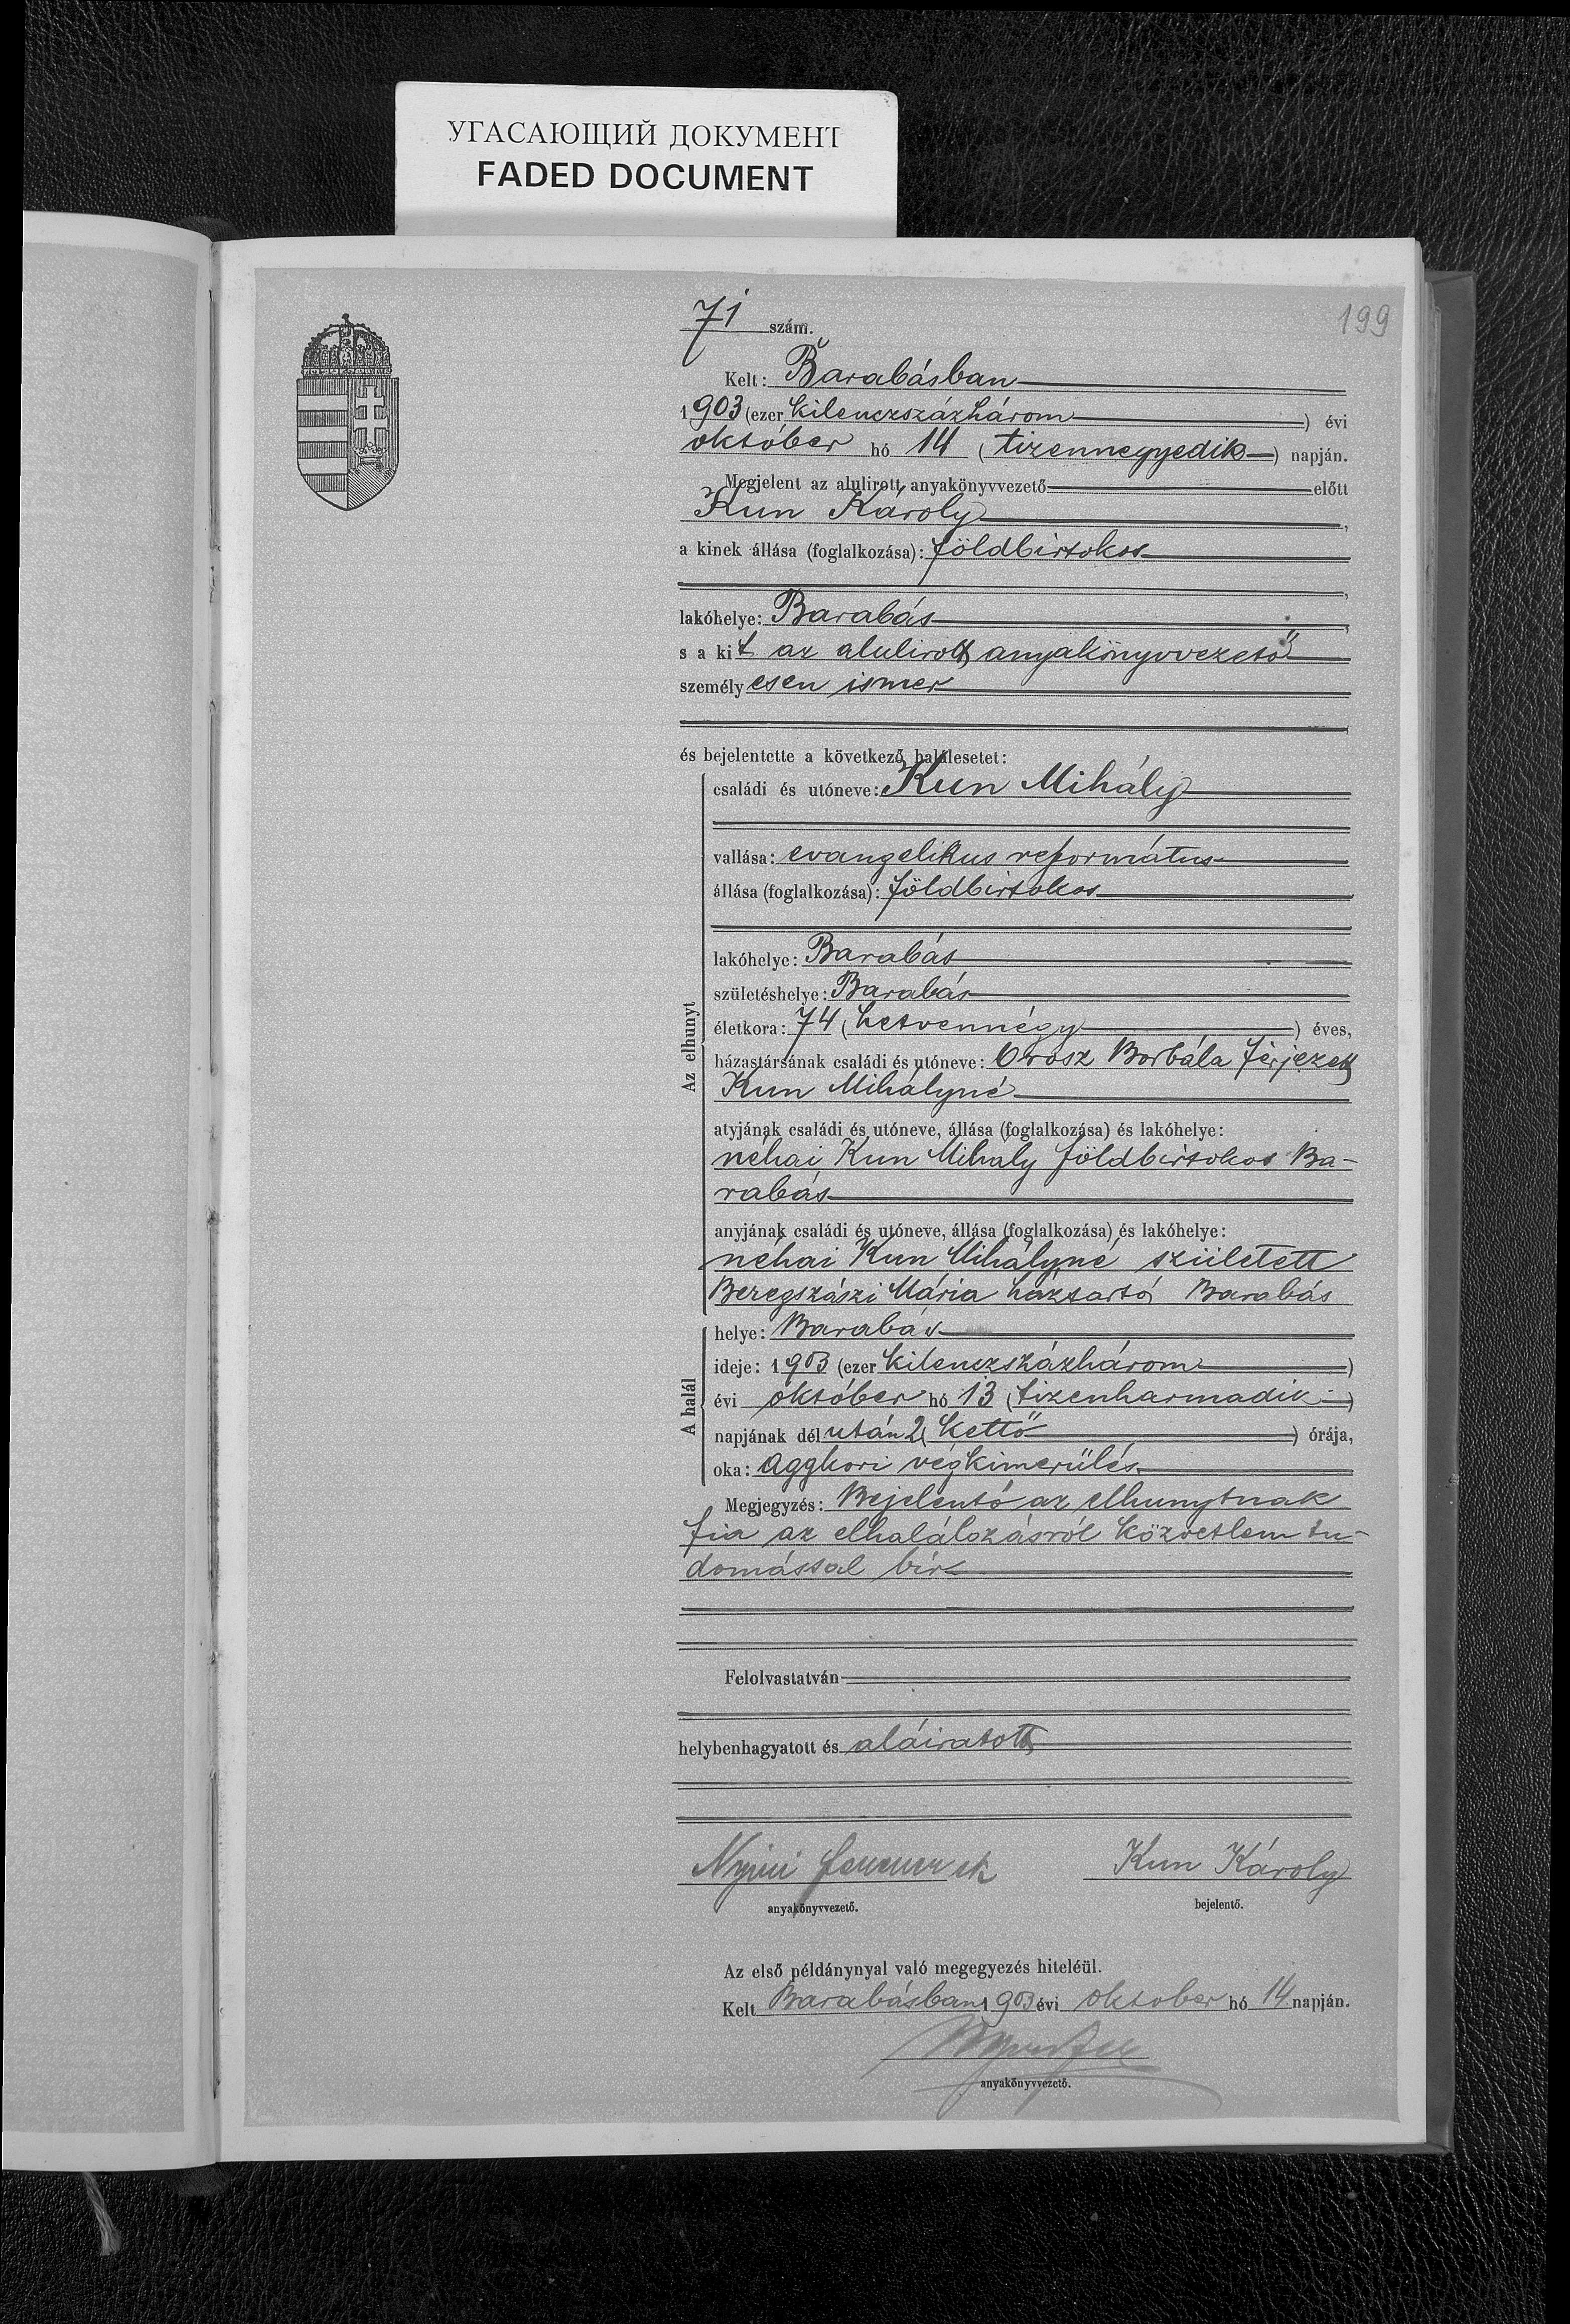 УГАСАЮЩИЙ ДОКУМЕНТ
FADED DOCUMENT
199
71 szám.
Kelt: Barabásban
1903 (ezer kilenczszázhárom) évi
október hó 14 (tizennegyedik) napján.
Megjelent az alulirott anyakönyvvezető előtt
Kun Károly,
a kinek állása (foglalkozása): földbirtokos
,
lakóhelye: Barabás,
s a kit az alulirott anyakönyvvezető
személyesen ismer
,
és bejelentette a következő halálesetet:
Az elhunyt
családi és utóneve: Kun Mihály
vallása: evangelikus református
állása (foglalkozása): földbirtokos
lakóhelye: Barabás
születéshelye: Barabás
életkora: 74 (hetvennégy) éves,
házastársának családi és utóneve: Orosz Borbála férjezett
Kun Mihályné
atyjának családi és utóneve, állása (foglalkozása) és lakóhelye:
néhai Kun Mihály földbirtokos Ba-
rabás
anyjának családi és utóneve, állása (foglalkozása) és lakóhelye:
néhai Kun Mihályné született
Beregszászi Mária háztartó Barabás
A halál
helye: Barabás
ideje: 1903 (ezer kilenczszázhárom)
évi október hó 13 (tizenharmadik)
napjának délután 2 (kettő) órája,
oka: aggkori végkimerülés
Megjegyzés: Bejelentő az elhunytnak
fia az elhalálozásról közvetlem tu-
domással bir
Felolvastatván
helybenhagyatott és aláiratott
Kun Károly
anyakönyvvezető. bejelentő.
Az első példánynyal való megegyezés hiteléül.
Kelt Barabásban 1903 évi október hó 14 napján.
anyakönyvvezető.